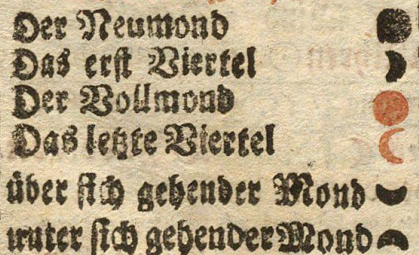 Der Neumond
Das erst Viertel
Der Vollmond
Das letzte Viertel
über sich gehender Mond
unter sich gehender Mond